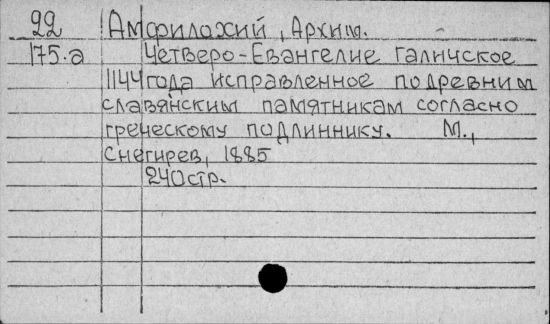 22 Амфилохий, Архим.
175.а Четверо-Евангелие Галичское
1144 года исправленное по древним
славянским памятникам согласно
греческому подлиннику. М.,
Снегирев, 1885
240стр.